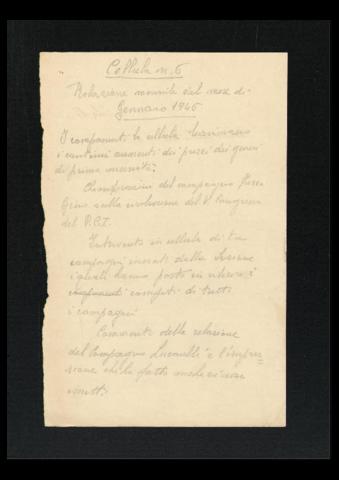 Cellula n. 6
Relazione mensile del mese di
Gennaio 1946
I componenti la cellula
i continui aumenti dei prezzi dei generi
di prima necessità.
del compagno
sulla risoluzione del V Congresso
del P.C.I.
Intervento in cellula di tre
compagni inviati dalla Sezione
i quali hanno posto in rilievo i
compiti di tutti
i compagni
Commenti della relazione
del Compagno e l'impres=
sione che ha fatto anche ai non